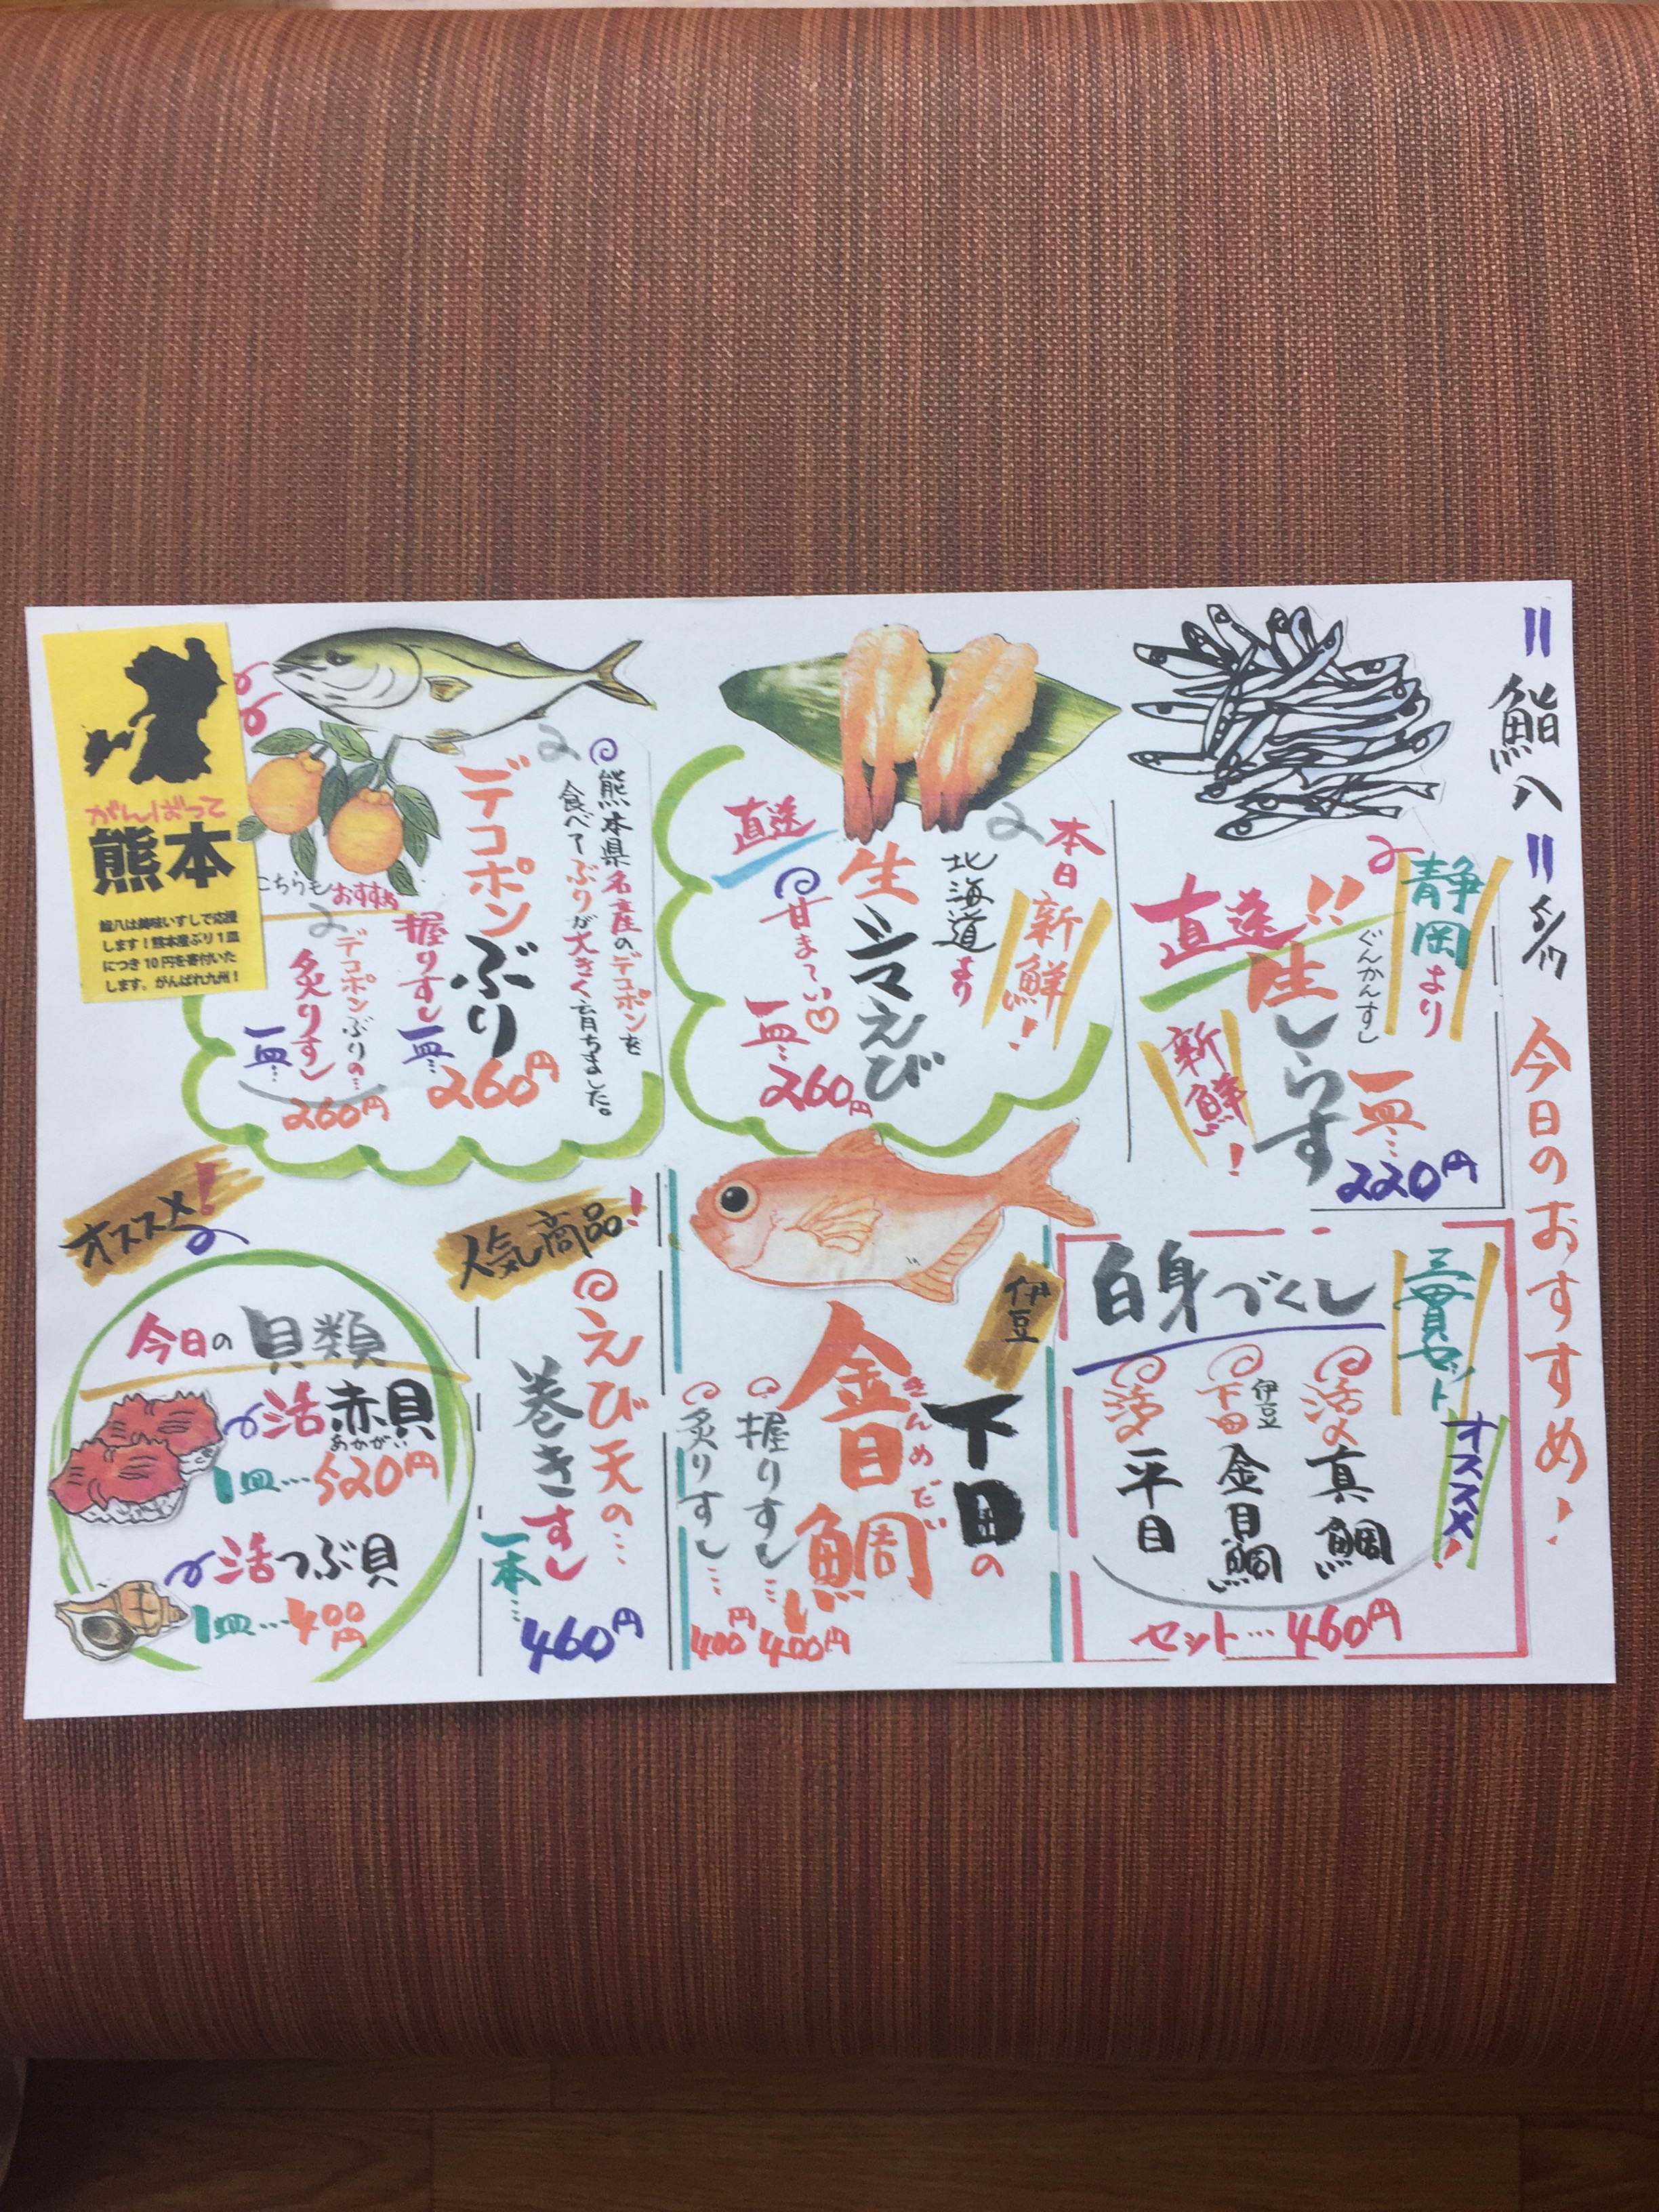 =鮨八= 5/17 今日のおすすめ!
静岡より
ぐんかんすし
直送!!
生しらす
新鮮!
一皿…
220円
本日
新鮮!
北海道より
生シマえび
直送
甘まーい♡
一皿…
260円
熊本県名産のデコポンを
食べてぶりが大きく育ちました。
デコポンぶり
握りすし
一皿…
260円
こちらもおすすめ
デコポンぶりの…
炙りすし
一皿…
260円
がんばって
熊本
鮨八は美味いすしで応援
します!熊本産ぶり1皿
につき10円を寄付いた
します。がんばれ九州!
三貫セット
オススメ!
白身づくし
活〆真鯛
伊豆
下田金目鯛
活〆平目
セット…460円
伊豆
下田の
金目鯛
きんめだい
握りすし…
400円
炙りすし…
400円
人気商品!
えび天の…
巻きすし
一本…
460円
オススメ!
今日の貝類
活赤貝
あかがい
1皿…520円
活つぶ貝
1皿…400円